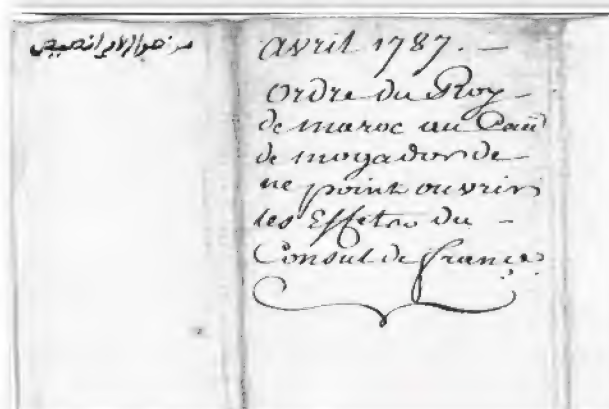 avril 1787. –
Ordre du Roy
de maroc au Caïd
de mogador de
ne point ouvrir
les Effets du –
Consul de france